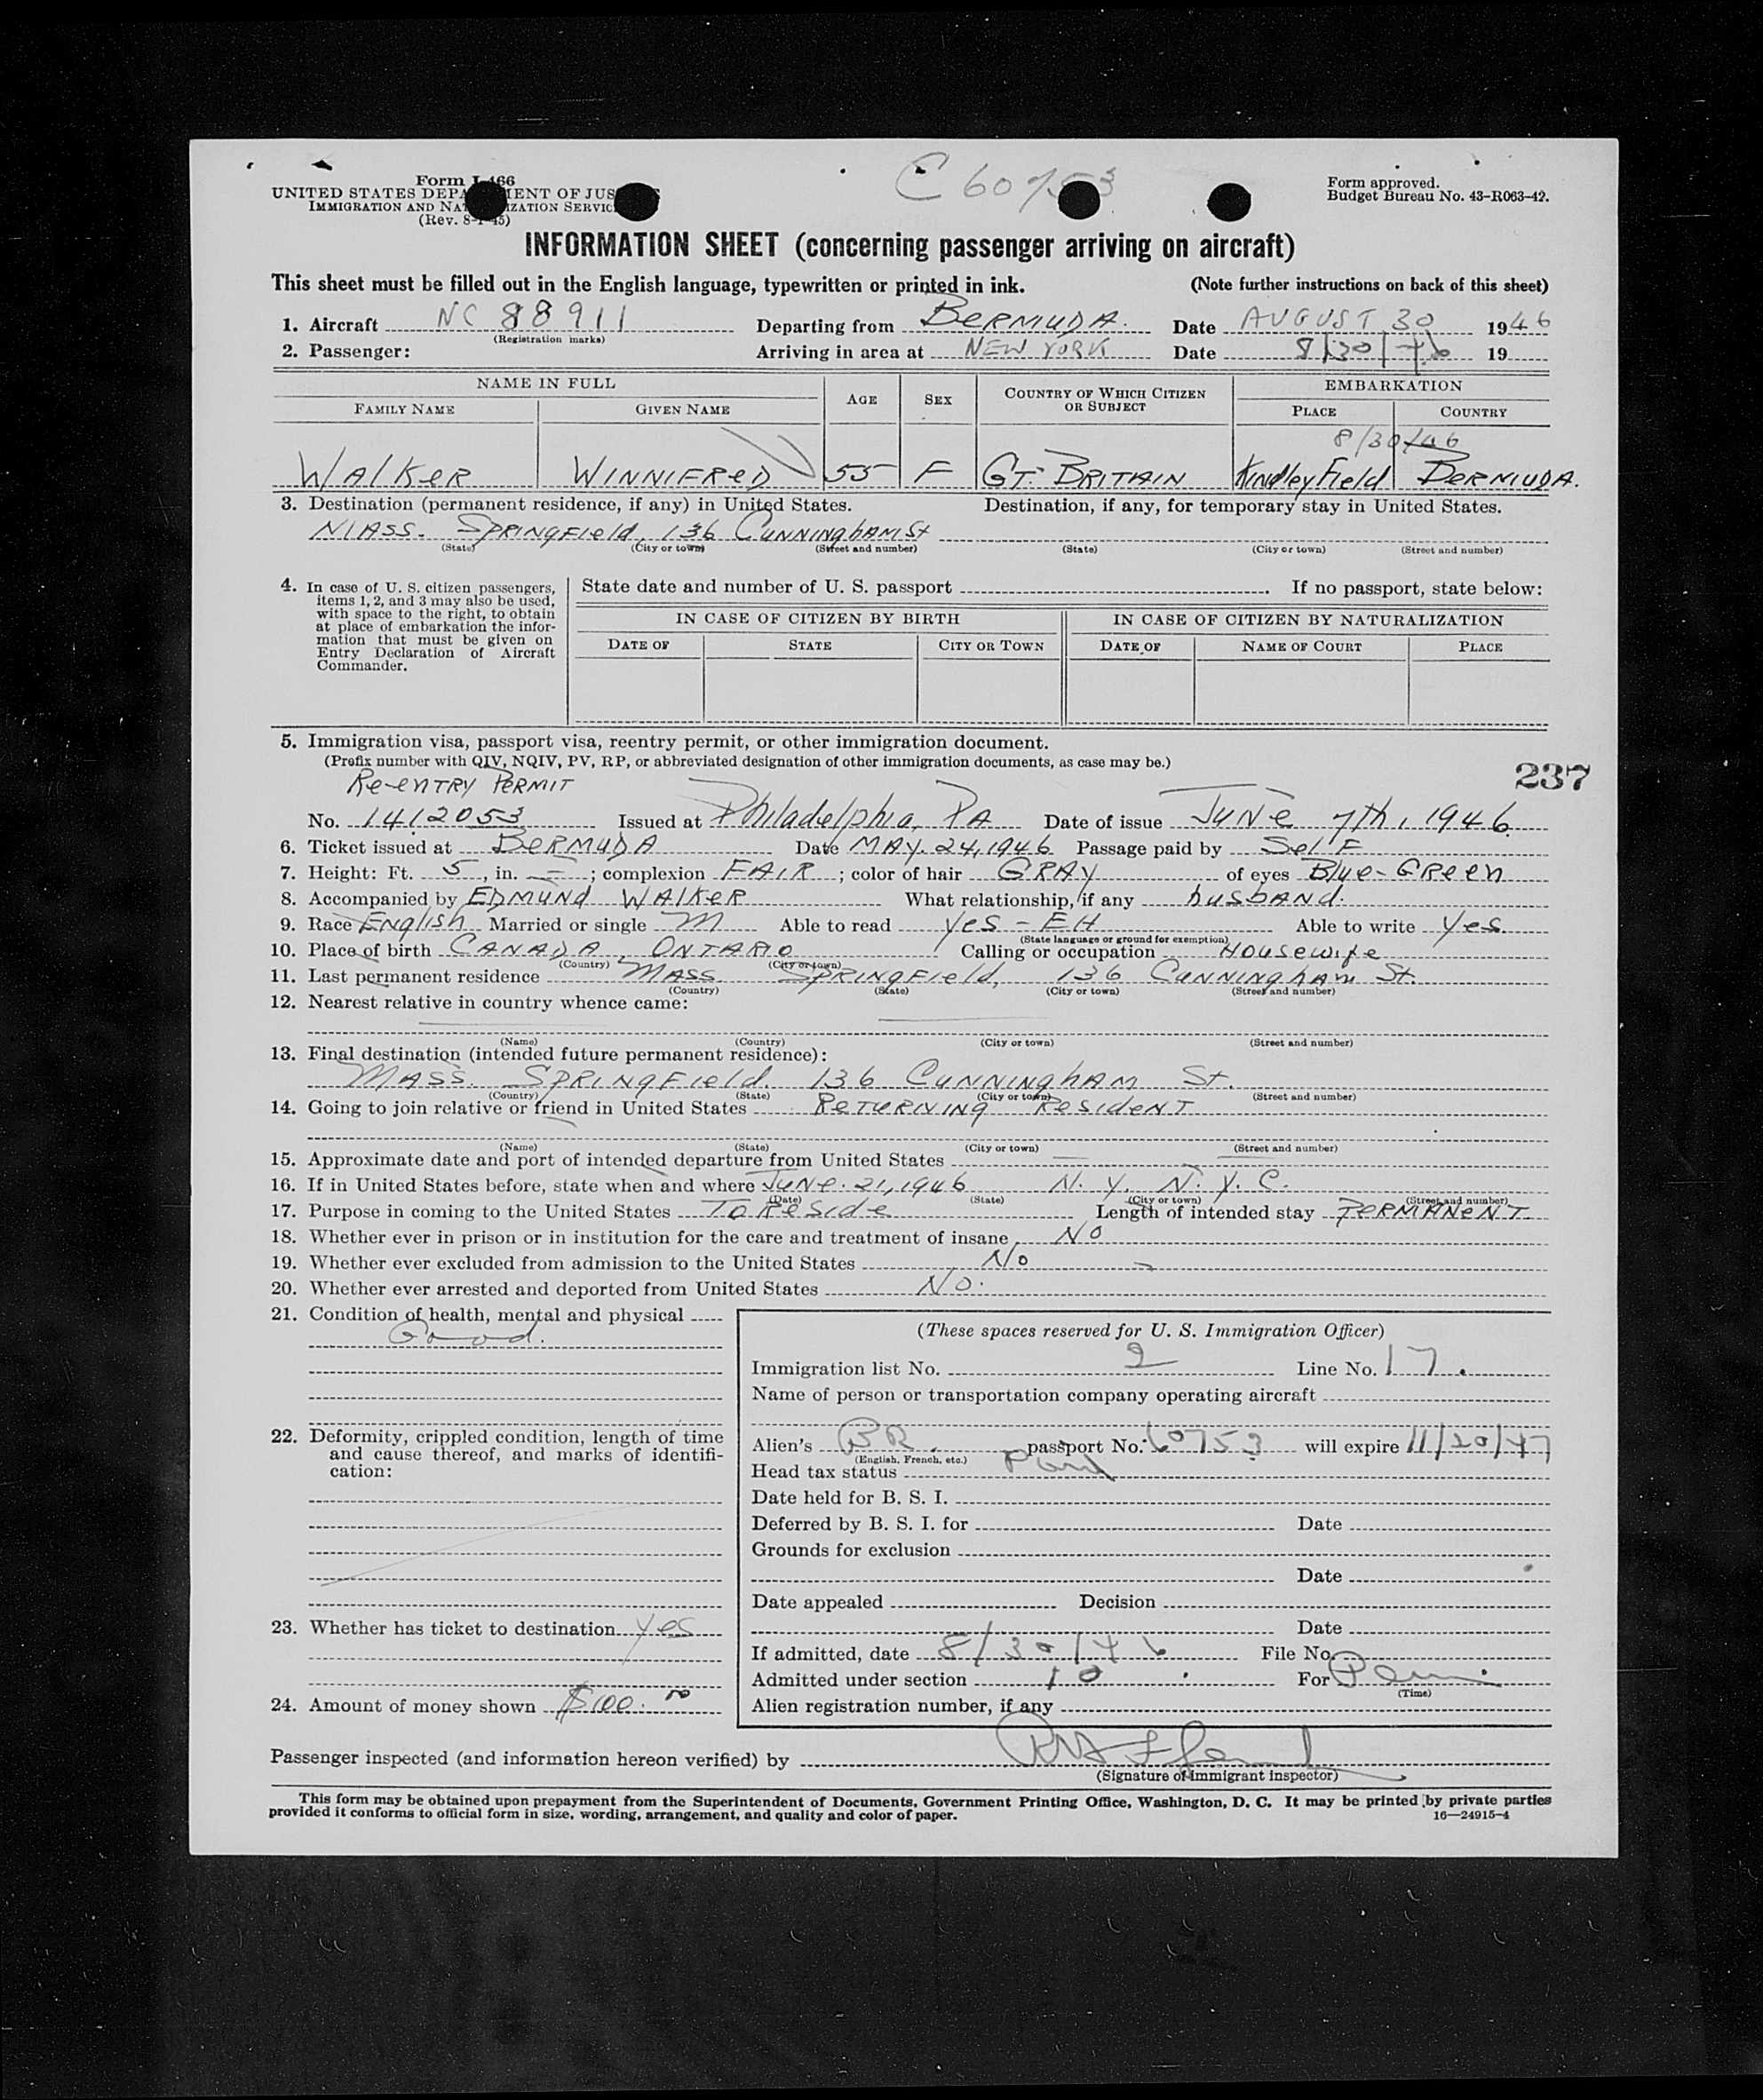 C 60753
Form I-466
UNITED STATES DEPARTMENT OF JUSTICE
IMMIGRATION AND NATURALIZATION SERVICE
(Rev. 8-1-45)
Form approved.
Budget Bureau No. 43-R063-42.
INFORMATION SHEET (concerning passenger arriving on aircraft)
This sheet must be filled out in the English language, typewritten or printed in ink. (Note further instructions on back of this sheet)
1. Aircraft NC 88911 Departing from BERMUDA. Date AUGUST 30 1946
(Registration marks)
2. Passenger: Arriving in area at NEW YORK Date 8/30/46 19
NAME IN FULL AGE SEX COUNTRY OF WHICH CITIZEN OR SUBJECT EMBARKATION
FAMILY NAME GIVEN NAME PLACE COUNTRY
8/30/46
WALKER WINNIFRED 55 F GT. BRITAIN Kindley Field BERMUDA.
3. Destination (permanent residence, if any) in United States. Destination, if any, for temporary stay in United States.
MASS. SPRINGFIeld, 136 CUNNINGhAM St
(State) (City or town) (Street and number) (State) (City or town) (Street and number)
4. In case of U. S. citizen passengers, items 1, 2, and 3 may also be used, with space to the right, to obtain at place of embarkation the information that must be given on Entry Declaration of Aircraft Commander.
State date and number of U. S. passport . If no passport, state below:
IN CASE OF CITIZEN BY BIRTH IN CASE OF CITIZEN BY NATURALIZATION
DATE OF STATE CITY OR TOWN DATE OF NAME OF COURT PLACE
5. Immigration visa, passport visa, reentry permit, or other immigration document.
(Prefix number with QIV, NQIV, PV, RP, or abbreviated designation of other immigration documents, as case may be.)
237
Re-entry Permit
No. 1412053 Issued at Philadelphia, PA Date of issue June 7th, 1946
6. Ticket issued at BERMUDA Date MAY. 24, 1946 Passage paid by Self
7. Height: Ft. 5, in. —; complexion FAIR; color of hair GRAY of eyes Blue-Green
8. Accompanied by EDMUNd WALKER What relationship, if any husbANd.
9. Race English Married or single M Able to read yes - EH Able to write yes
(State language or ground for exemption)
10. Place of birth CANADA, ONTARIO Calling or occupation HOUSEwife
(Country) (City or town)
11. Last permanent residence MASS. SPRINGField, 136 CUNNINGhAM St.
(Country) (State) (City or town) (Street and number)
12. Nearest relative in country whence came:
(Name) (Country) (City or town) (Street and number)
13. Final destination (intended future permanent residence):
MASS. SPRINGField. 136 CUNNINGhAM St.
(Country) (State) (City or town) (Street and number)
14. Going to join relative or friend in United States RETURNING ResideNT
(Name) (State) (City or town) (Street and number)
15. Approximate date and port of intended departure from United States —
16. If in United States before, state when and where JUNE. 21, 1946 N. Y. N. Y. C.
(Date) (State) (City or town) (Street and number)
17. Purpose in coming to the United States To Reside Length of intended stay PERMANENT
18. Whether ever in prison or in institution for the care and treatment of insane NO
19. Whether ever excluded from admission to the United States No
20. Whether ever arrested and deported from United States No.
21. Condition of health, mental and physical
Good.
22. Deformity, crippled condition, length of time and cause thereof, and marks of identification:
23. Whether has ticket to destination yes
24. Amount of money shown $100.00
(These spaces reserved for U. S. Immigration Officer)
Immigration list No. 2 Line No. 17.
Name of person or transportation company operating aircraft
Alien's BR. passport No. 60753 will expire 11/20/47
(English, French, etc.)
Head tax status Paid
Date held for B. S. I.
Deferred by B. S. I. for Date
Grounds for exclusion
Date
Date appealed Decision
Date
If admitted, date 8/30/46 File No.
Admitted under section 10 For Perm.
(Time)
Alien registration number, if any
Passenger inspected (and information hereon verified) by
(Signature of immigrant inspector)
This form may be obtained upon prepayment from the Superintendent of Documents, Government Printing Office, Washington, D. C. It may be printed by private parties
provided it conforms to official form in size, wording, arrangement, and quality and color of paper. 16—24915-4